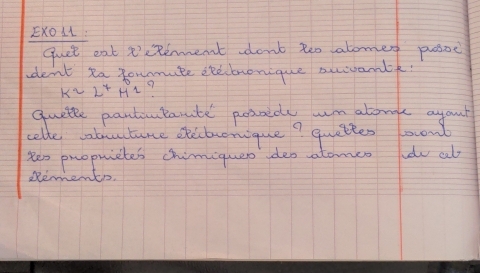 EXO 11 :
Quel est l'élément dont les atomes possè
dent la formule électronique suivante :
K2 L7 M1 ?
Quelle particularité possède un atome ayant
cette structure électronique ? Quelles sont
les propriétés chimiques des atomes de cet
éléments.